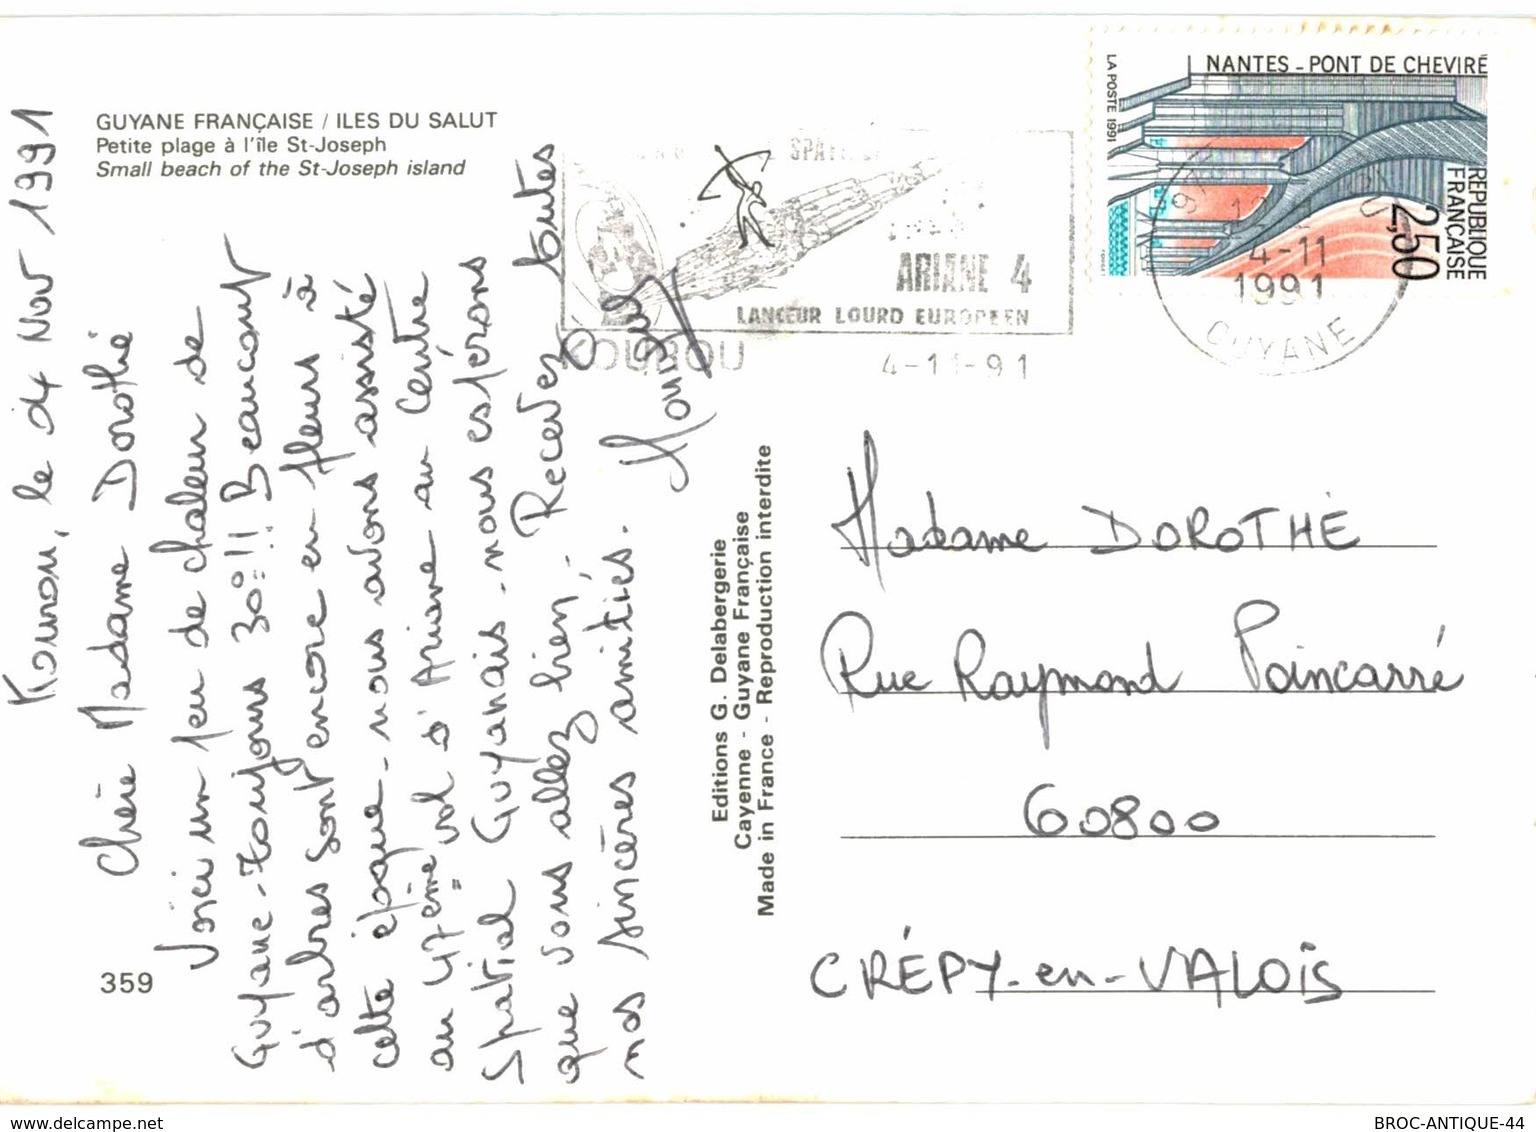 GUYANE FRANÇAISE / ILES DU SALUT
Petite plage à l'île St-Joseph
Small beach of the St-Joseph island
Kourou, le 04 Nov 1991
Chère Madame Dorothé
Voici un peu de chaleur de
Guyane - Toujours 30°!! Beaucoup
d'arbres sont encore en fleurs à
cette époque - nous avons assisté
au 47ème vol d'Ariane au Centre
Spatial Guyanais - nous espérons
que vous allez bien, - Recevez toutes
nos sincères amitiés.
359
Editions G. Delabergerie
Cayenne - Guyane Française
Made in France - Reproduction interdite
ARIANE 4
LANCEUR LOURD EUROPEEN
KOUROU
4-11-91
NANTES - PONT DE CHEVIRÉ
LA POSTE 1991
REPUBLIQUE
FRANÇAISE
2,50
4-11
1991
GUYANE
Madame DOROTHÉ
Rue Raymond Poincarré
60800
CRÉPY-en-VALOIS
www.delcampe.net
BROC-ANTIQUE-44